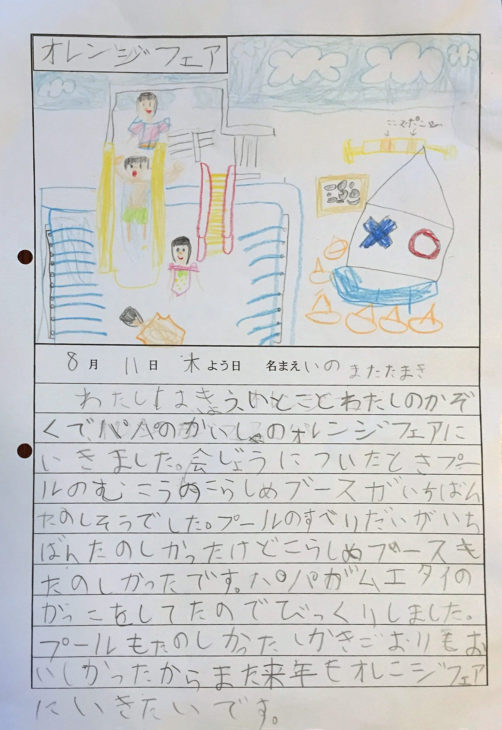 オレンジフェア
8月 11日 木よう日 名まえ いのまたたまき
わたしはきょういとことわたしのかぞ
くでパパのかいしゃのオレンジフェアに
いきました。会じょうについたときプー
ルのむこうのこらしめブースがいちばん
たのしそうでした。プールのすべりだいがいち
ばんたのしかったけどこらしめブースも
たのしかったです。パパがムエタイの
かっこをしてたのでびっくりしました。
プールもたのしかったしかきごおりもお
いしかったからまた来年もオレンジフェア
にいきたいです。